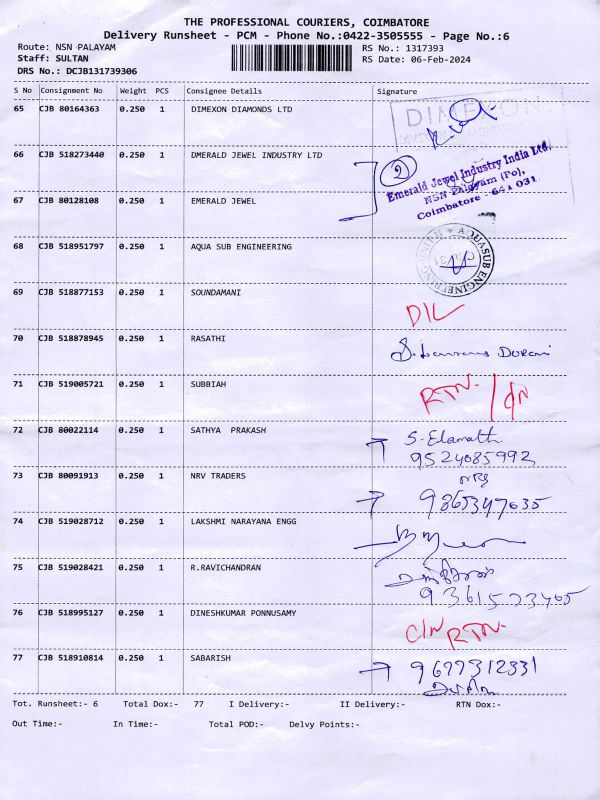 THE PROFESSIONAL COURIERS, COIMBATORE
Delivery Runsheet - PCM - Phone No.:0422-3505555 - Page No.:6
Route: NSN PALAYAM RS No.: 1317393
Staff: SULTAN RS Date: 06-Feb-2024
DRS No.: DCJB131739306
S No Consignment No Weight PCS Consignee Details Signature
65 CJB 80164363 0.250 1 DIMEXON DIAMONDS LTD DIMEXON
66 CJB 518273440 0.250 1 DMERALD JEWEL INDUSTRY LTD 2
Emerald Jewel Industry India Ltd.
NSN Palayam (Po),
Coimbatore - 641 031
67 CJB 80128108 0.250 1 EMERALD JEWEL
68 CJB 518951797 0.250 1 AQUA SUB ENGINEERING AQUASUB ENGINEERING
69 CJB 518877153 0.250 1 SOUNDAMANI DIL
70 CJB 518878945 0.250 1 RASATHI
71 CJB 519005721 0.250 1 SUBBIAH RTN
72 CJB 80022114 0.250 1 SATHYA PRAKASH S. Elamathi
9524085992
73 CJB 80091913 0.250 1 NRV TRADERS
9865347035
74 CJB 519028712 0.250 1 LAKSHMI NARAYANA ENGG
75 CJB 519028421 0.250 1 R.RAVICHANDRAN
9361523405
76 CJB 518995127 0.250 1 DINESHKUMAR PONNUSAMY C/N RTN
77 CJB 518910814 0.250 1 SABARISH 9677312331
Tot. Runsheet:- 6 Total Dox:- 77 I Delivery:- II Delivery:- RTN Dox:-
Out Time:- In Time:- Total POD:- Delvy Points:-